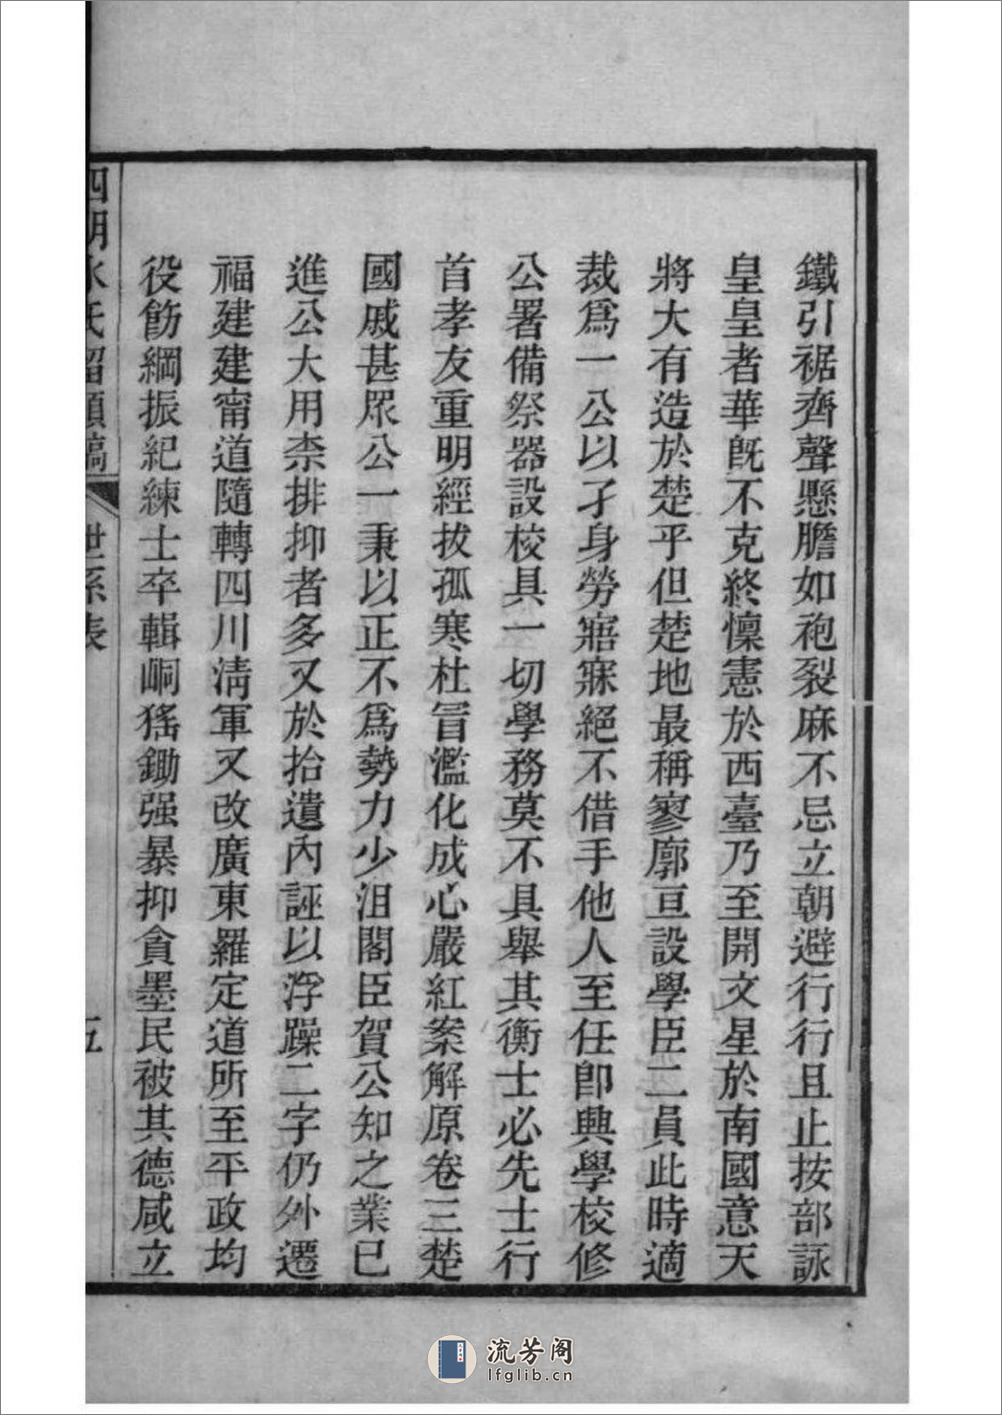 鐵引裾齊聲懸膽如袍裂麻不忌立朝避行行且止按部詠
皇皇者華旣不克終懍憲於西臺乃至開文星於南國意天
將大有造於楚乎但楚地最稱寥廓亘設學臣二員此時適
裁爲一公以孑身勞寤寐絕不借手他人至任卽興學校修
公署備祭器設校具一切學務莫不具舉其衡士必先士行
首孝友重明經拔孤寒杜冒濫化成心嚴紅案解原卷三楚
國戚甚眾公一秉以正不爲勢力少沮閣臣賀公知之業已
進公大用柰排抑者多又於拾遺內誣以浮躁二字仍外遷
福建建甯道隨轉四川淸軍又改廣東羅定道所至平政均
役飭綱振紀練士卒輯峒猺鋤强暴抑貪墨民被其德咸立
四明水氏留碩稿 世系表 五
流芳阁
lfglib.cn